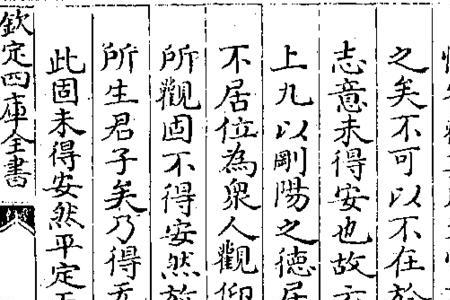 之矣不可以不在於
志意未得安也故云
上九以剛陽之德居
不居位為衆人觀仰
所觀固不得安然放
所生君子矣乃得无
此固未得安然平定无
欽定四庫全書